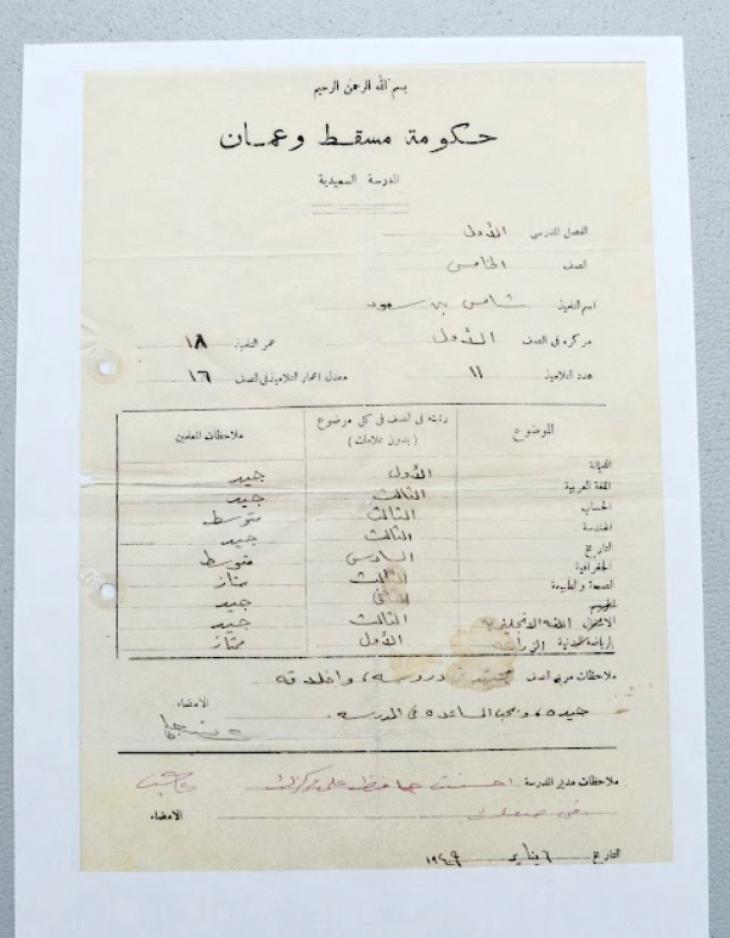 بسم الله الرحمن الرحيم
حكومة مسقط وعمان
المدرسة السعيدية
الفصل المدرسي الأول
الصف الخامس
اسم التلميذ شامس بن سعود
مركزه في الصف الأول عمر التلميذ ١٨
عدد التلاميذ ١١ معدل اعمار التلاميذ في الصف ١٦
الموضوع رتبته في الصف في كل موضوع (بدون علامات) ملاحظات المعلمين
الديانة الأول جيد
اللغة العربية الثالث جيد
الحساب الثالث متوسط
الهندسة الثالث جيد
التاريخ السادس متوسط
الجغرافية الثالث ممتاز
الصحة والطبيعة الثاني جيد
الرسم
الأشغال اللغة الانجليزية الثالث جيد
الرياضة البدنية الأول ممتاز
ملاحظات مربي الصف دروسه، واخلاقه
جيده، ويحب المساعده في المدرسه.
الامضاء
ملاحظات مدير المدرسة احسنت حافظ على مركزك
في صفك
الامضاء
التاريخ ٦ يناير ١٩٤٩